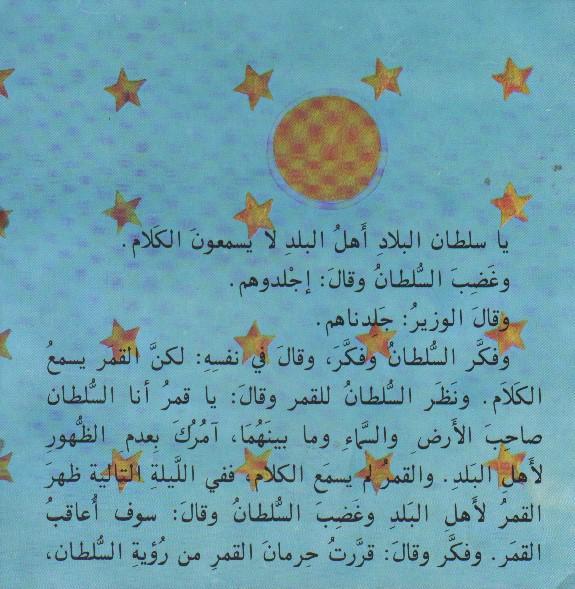 يا سلطان البلادِ أَهلُ البلدِ لا يسمعونَ الكَلام.
وغَضِبَ السُّلطانُ وقالَ: إجْلدوهم.
وقالَ الوزيرُ: جَلدناهم.
وفكَّر السُّلطانُ وَفكَّرَ، وقالَ في نفسِهِ: لكنَّ القمر يسمعُ
الكَلاَم. ونَظَر السُّلطانُ للقمر وقالَ: يا قمرُ أنا السُّلطان
صاحِبَ الأَرضِ والسَّماءِ وما بينَهُمَا، آمُرُكَ بِعدم الظُّهورِ
لأَهلِ البَلدِ. والقمرُ لم يسمَع الكلامَ، ففي اللَّيلةِ التالية ظهرَ
القمرُ لأَهلِ البَلدِ وغَضِبَ السُّلطانُ وقالَ: سوف أُعاقبُ
القمَر. وفكَّر وقالَ: قرَّرتُ حِرمانَ القمرِ من رُؤيةِ السُّلطان،